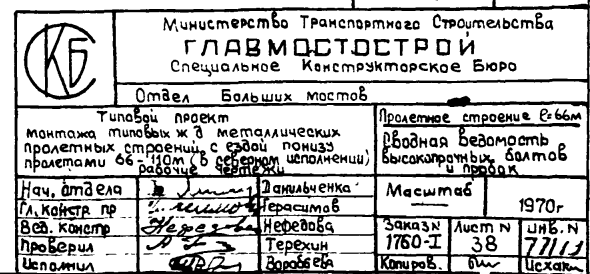 СКБ
Министерство Транспортного Строительства
ГЛАВМОСТОСТРОЙ
Специальное Конструкторское Бюро
Отдел Больших мостов
Типовой проект
монтажа типовых ж д металлических
пролетных строений, с ездой понизу
пролетами 66-110м (в северном исполнении)
рабочие чертежи
Пролетное строение ℓ=66м
Сводная ведомость
высокопрочных болтов
и пробок
Нач. отдела Данильченко
Гл. констр пр Герасимов
Вед. констр Нефедова
проверил Терехин
Исполнил Воробьева
Масштаб
1970г
Заказ N Лист N Инв. N
1760-I 38
Копиров.